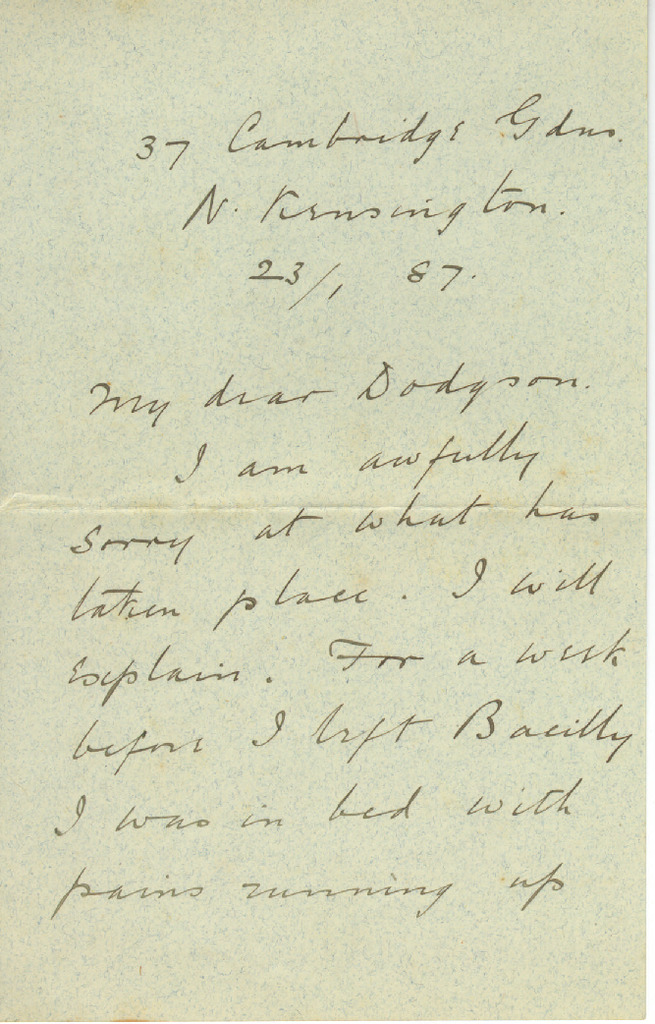 37 Cambridge Gdns.
N. Kensington.
23/1 87.
My dear Dodgson.
I am awfully
sorry at what has
taken place. I will
explain. For a week
before I left Bacilly
I was in bed with
pains running up